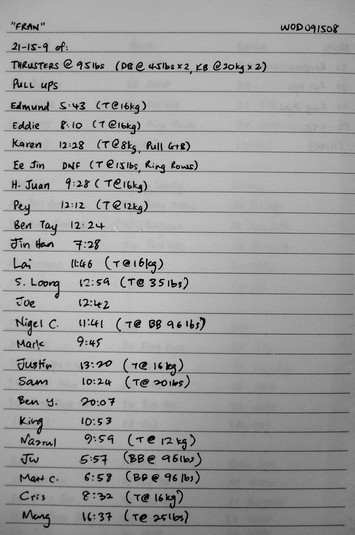 "FRAN" WOD 091508
21-15-9 of:
THRUSTERS @ 95lbs (DB @ 45lbs x 2, KB @ 20kg x 2)
PULL UPS
Edmund 5:43 (T@16kg)
Eddie 8:10 (T@16kg)
Karen 12:28 (T@8kg, Pull G+B)
Ee Jin DNF (T@15lbs, Ring Rows)
H. Juan 9:28 (T@16kg)
Pey 12:12 (T@12kg)
Ben Tay 12:24
Jin Han 7:28
Lai 11:46 (T@16kg)
S. Loong 12:59 (T@35lbs)
Joe 12:42
Nigel C. 11:41 (T@ BB 96lbs)
Mark 9:45
Justin 13:20 (T@ 16kg)
Sam 10:24 (T@ 20lbs)
Ben Y. 20:07
King 10:53
Nasrul 9:59 (T@ 12kg)
Jw 5:57 (BB@ 96lbs)
Matt C. 6:58 (BB@ 96lbs)
Cris 8:32 (T@ 16kg)
Mang 16:37 (T@ 25lbs)